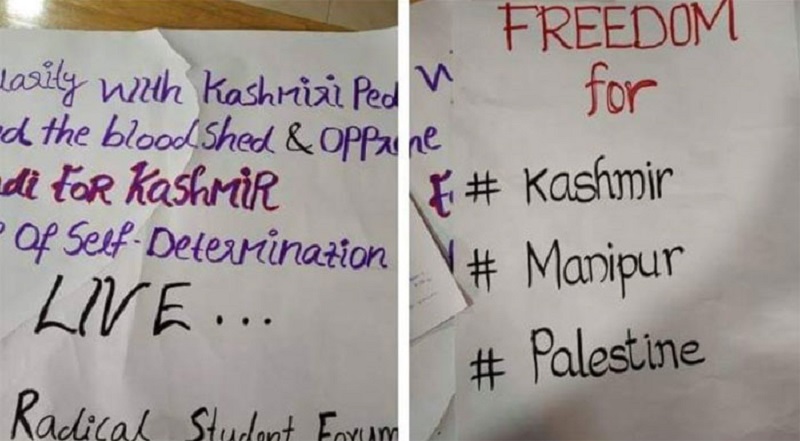 with Kashmiri Peo
d the bloodshed & OPPr
adi FOR KASHMIR
Of Self-Determination
LIVE...
Radical Student Forum
FREEDOM
for
# Kashmir
# Manipur
# Palestine